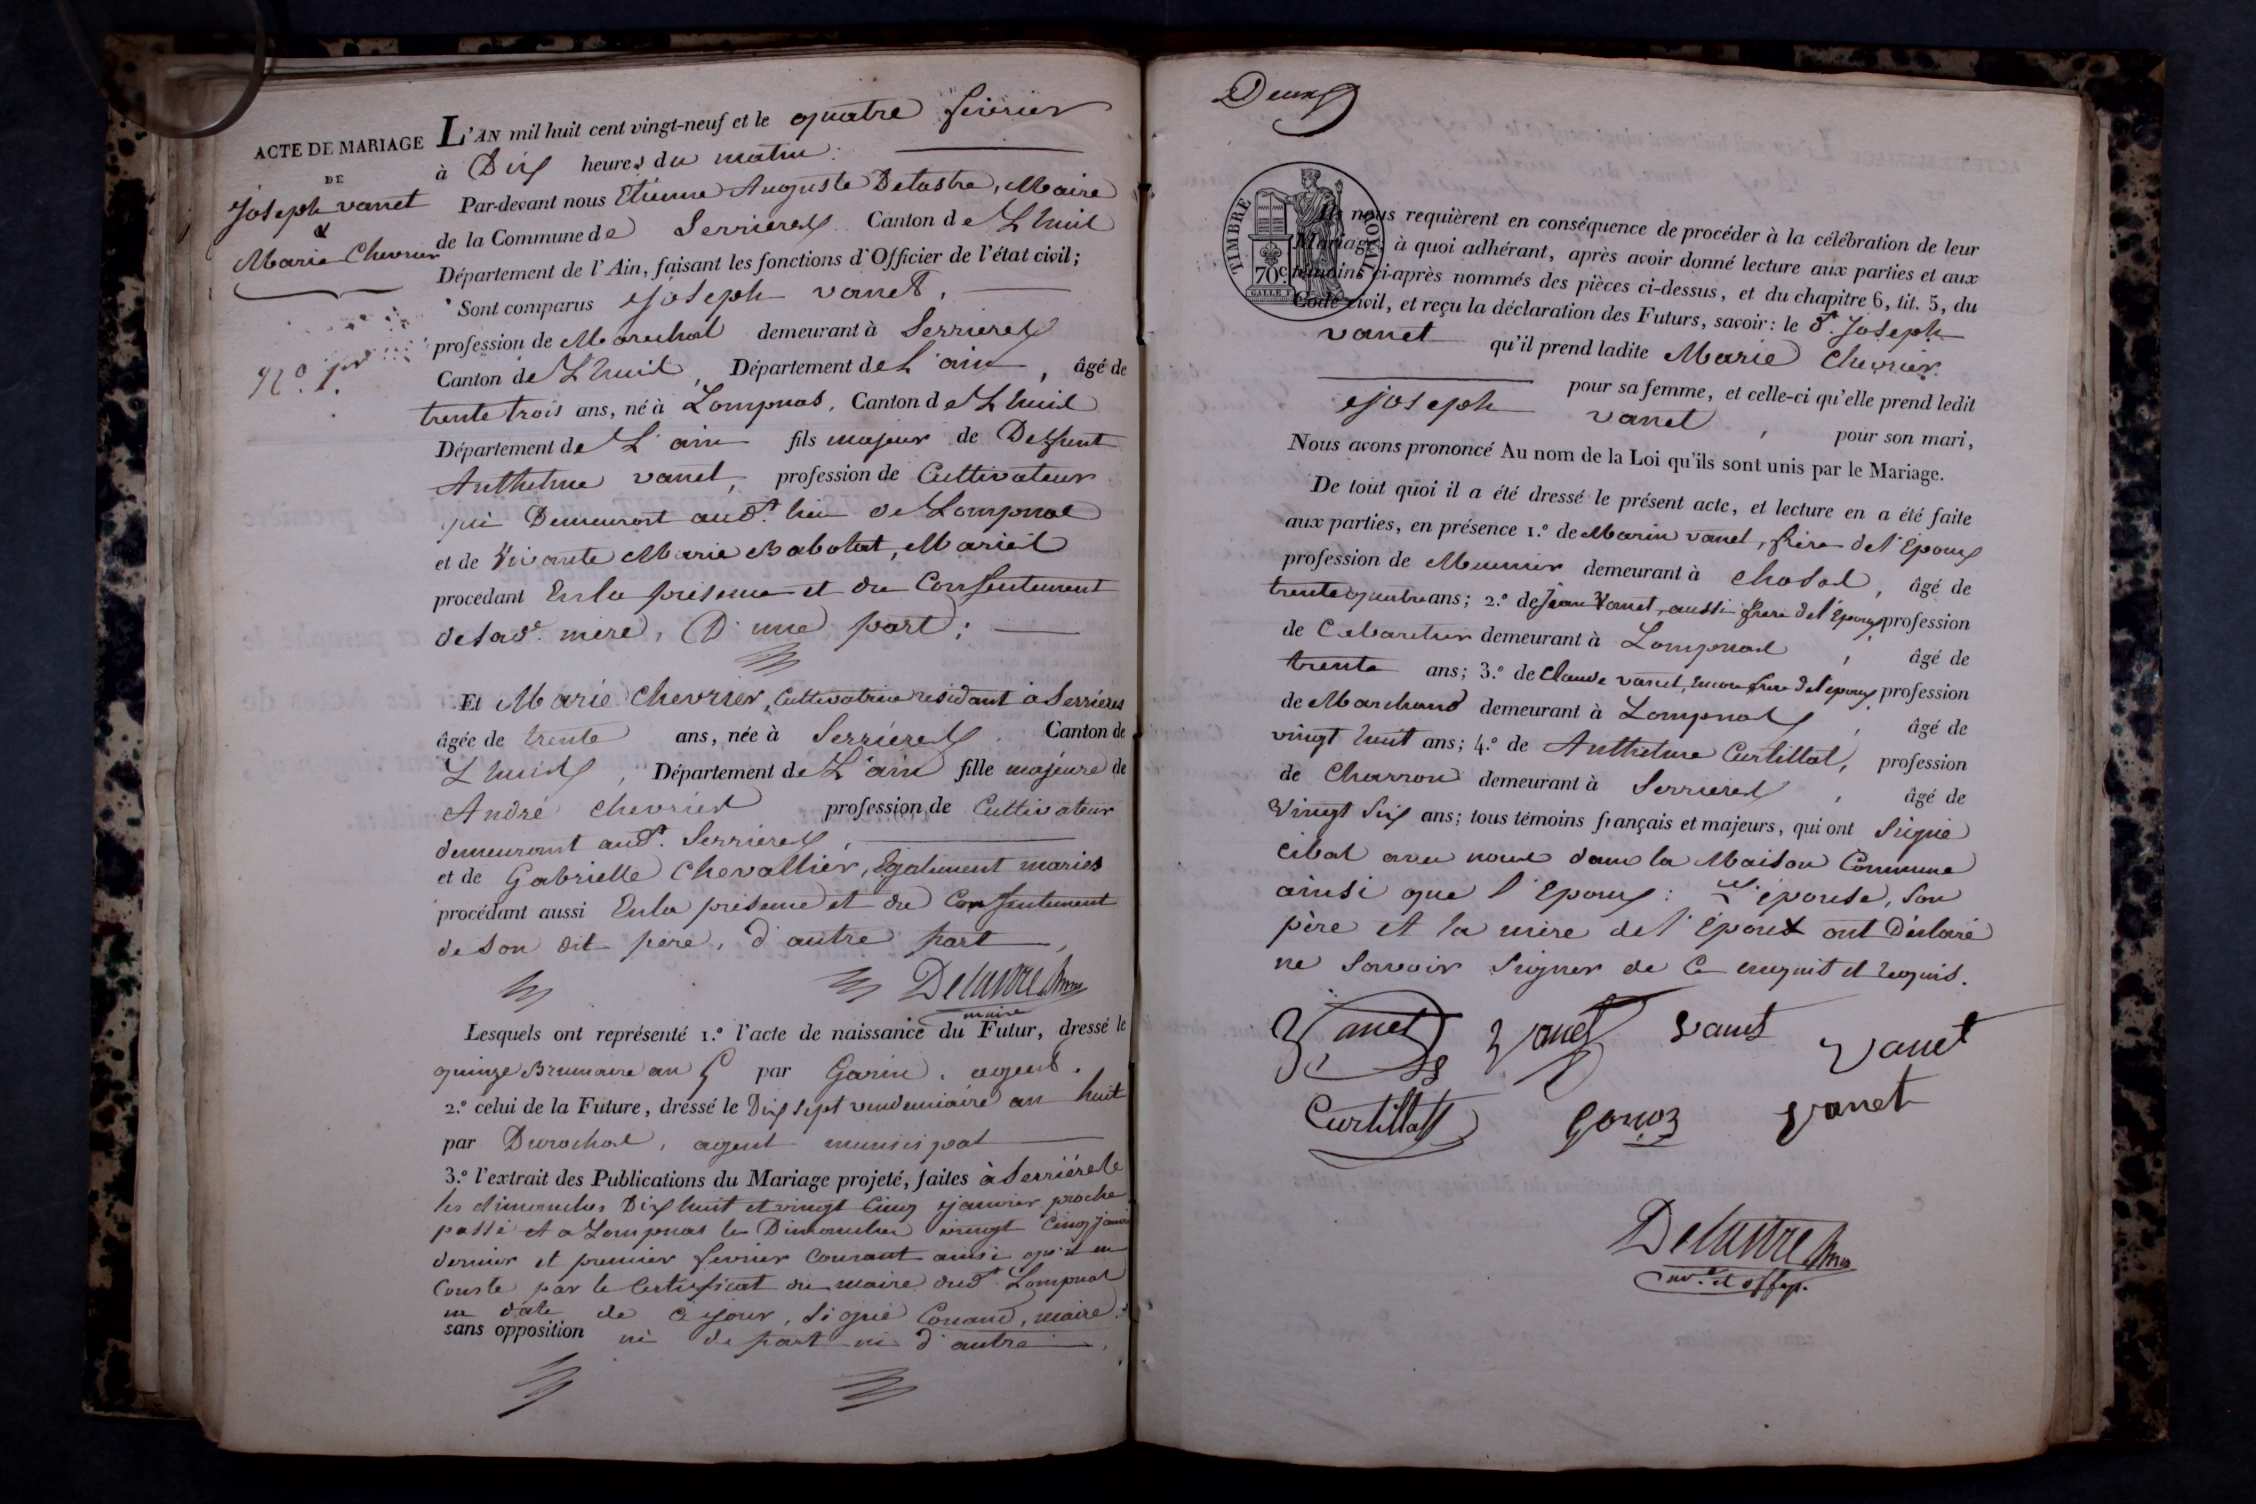 ACTE DE MARIAGE
DE
Joseph vanet
&
Marie Chevrier
N.º 1.er
L'AN mil huit cent vingt-neuf et le quatre février
à Dix heures du matin.
Par-devant nous Etienne Auguste Delastre, Maire
de la Commune de Serrieres Canton de Lhuis
Département de l'Ain, faisant les fonctions d'Officier de l'état civil;
Sont comparus Joseph vanet,
profession de Marechal demeurant à Serrieres
Canton de Lhuis, Département de L'ain, âgé de
trente trois ans, né à Lompnas, Canton de Lhuis
Département de L'ain fils majeur de Deffunt
Anthelme vanet, profession de Cultivateur
qui Demeurait aud.t lieu de Lompnas
et de vivante Marie Babolat, Mariés
procedant En la présence et du Consentement
de sad.e mère, D'une part;
Et Marie Chevrier, Cultivatrice residant à Serrieres
âgée de trente ans, née à Serriéres. Canton de
Lhuis, Département de L'ain fille majeure de
André chevrier profession de Cultivateur
demeurant aud.t Serrieres,
et de Gabrielle Chevallier, Egalement mariés
procédant aussi En la présence et du Consentement
de son dit père, d'autre part,
Delastre
maire
Lesquels ont représenté 1.º l'acte de naissance du Futur, dressé le
quinze Brumaire an par Garin, agent.
2.º celui de la Future, dressé le Dix sept vendemiaire an huit
par Durochat, agent municipal
3.º l'extrait des Publications du Mariage projeté, faites à Serriéres
les dimanches Dix huit et vingt Cinq janvier proche
passé et a Lompnas les Dimanches vingt Cinq
dernier et premier fevrier Courant ainsi qu'il en
Conste par le Certificat du maire dud.t Lompnas
en date de ce jour, Signé Conand, maire.
sans opposition ni de part ni d'autre,
Deux
TIMBRE ROYAL
70 c.
Ils nous requièrent en conséquence de procéder à la célébration de leur
Mariage; à quoi adhérant, après avoir donné lecture aux parties et aux
témoins ci-après nommés des pièces ci-dessus, et du chapitre 6, tit. 5, du
Code civil, et reçu la déclaration des Futurs, savoir: le S.r Joseph
vanet qu'il prend ladite Marie Chevrier
pour sa femme, et celle-ci qu'elle prend ledit
Joseph vanet, pour son mari,
Nous avons prononcé Au nom de la Loi qu'ils sont unis par le Mariage.
De tout quoi il a été dressé le présent acte, et lecture en a été faite
aux parties, en présence 1.º de Marin vanet, frère de l'Epoux
profession de Meunier demeurant à Chosas, âgé de
trente quatre ans; 2.º de Jean Vanet, aussi frère de l'Epoux, profession
de Cabaretier demeurant à Lompnas, âgé de
trente ans; 3.º de Claude vanet, Encore frere de l'epoux, profession
de Marchand demeurant à Lompnas, âgé de
vingt huit ans; 4.º de Anthelme Curtillat, profession
de Charron demeurant à Serrieres, âgé de
vingt Six ans; tous témoins français et majeurs, qui ont Signé
avec nous dans la Maison Commune
ainsi que l'Epoux: L'épouse, Son
père et la mère de l'époux ont Déclaré
ne Savoir Signer de Ce enquis et requis.
Vanet Vanet Vanet Vanet
Curtillat Gonoz Vanet
Delastre